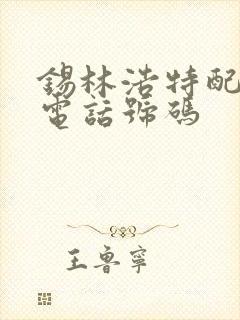 錫林浩特配
電話號碼
王魯寧